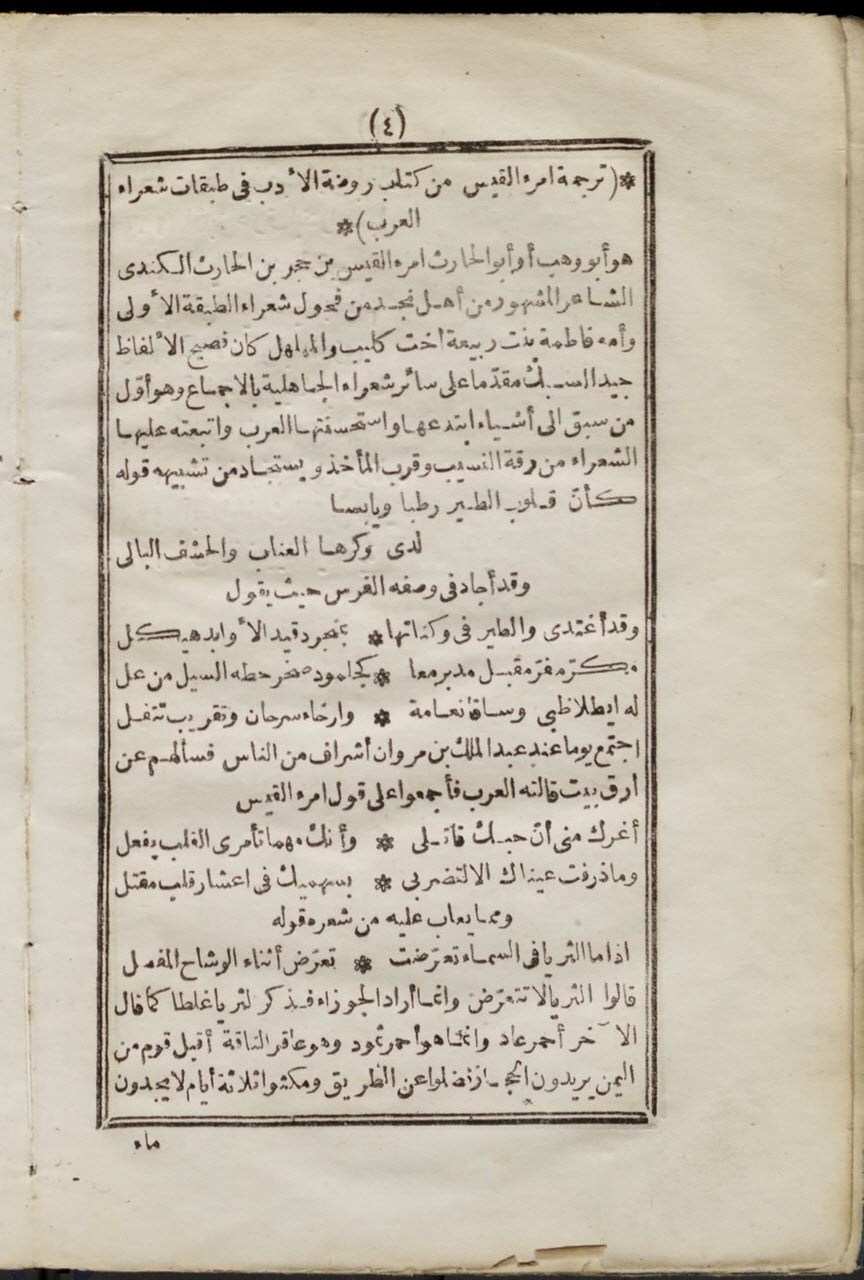 (٤)
*(ترجمة امرء القيس من كتاب روضة الأدب فى طبقات شعراء
العرب)*
هو أبو وهب أو أبو الحارث امرء القيس بن حجر بن الحارث الكندى
الشاعر المشهور من أهل نجد من فحول شعراء الطبقة الأولى
وأمه فاطمة بنت ربيعة اخت كليب والمهلهل كان فصيح الألفاظ
جيد السبك مقدّما على سائر شعراء الجاهلية بالاجماع وهو أوّل
من سبق الى أشياء ابتدعها واستحسنتها العرب واتبعته عليها
الشعراء من رقة النسيب وقرب المأخذ ويستجاد من تشبيهه قوله
كأنّ قلوب الطير رطبا ويابسا
لدى وكرها العناب والحشف البالى
وقد أجاد فى وصفه الفرس حيث يقول
وقد أغتدى والطير فى وكناتها * بمنجرد قيد الأوابد هيكل
مكرّ مفرّ مقبل مدبر معا * كجلمود صخر حطه السيل من عل
له ايطلا ظبى وساقا نعامة * وارخاء سرحان وتقريب تتفل
اجتمع يوما عند عبد الملك بن مروان أشراف من الناس فسألهم عن
أرق بيت قالته العرب فأجمعوا على قول امرء القيس
أغرك منى أنّ حبك قاتلى * وأنك مهما تأمرى القلب يفعل
وما ذرفت عيناك الا لتضربى * بسهميك فى اعشار قلب مقتل
ومما يعاب عليه من شعره قوله
اذا ما الثريا فى السماء تعرّضت * تعرّض أثناء الوشاح المفصل
قالوا الثريا لا تتعرّض وانما أراد الجوزاء فذكر الثريا غلطا كما قال
الآخر أحمر عاد وانما هو أحمر ثمود وهو عاقر الناقة أقبل قوم من
اليمن يريدون الحجاز فضلوا عن الطريق ومكثوا ثلاثة أيام لا يجدون
ماء